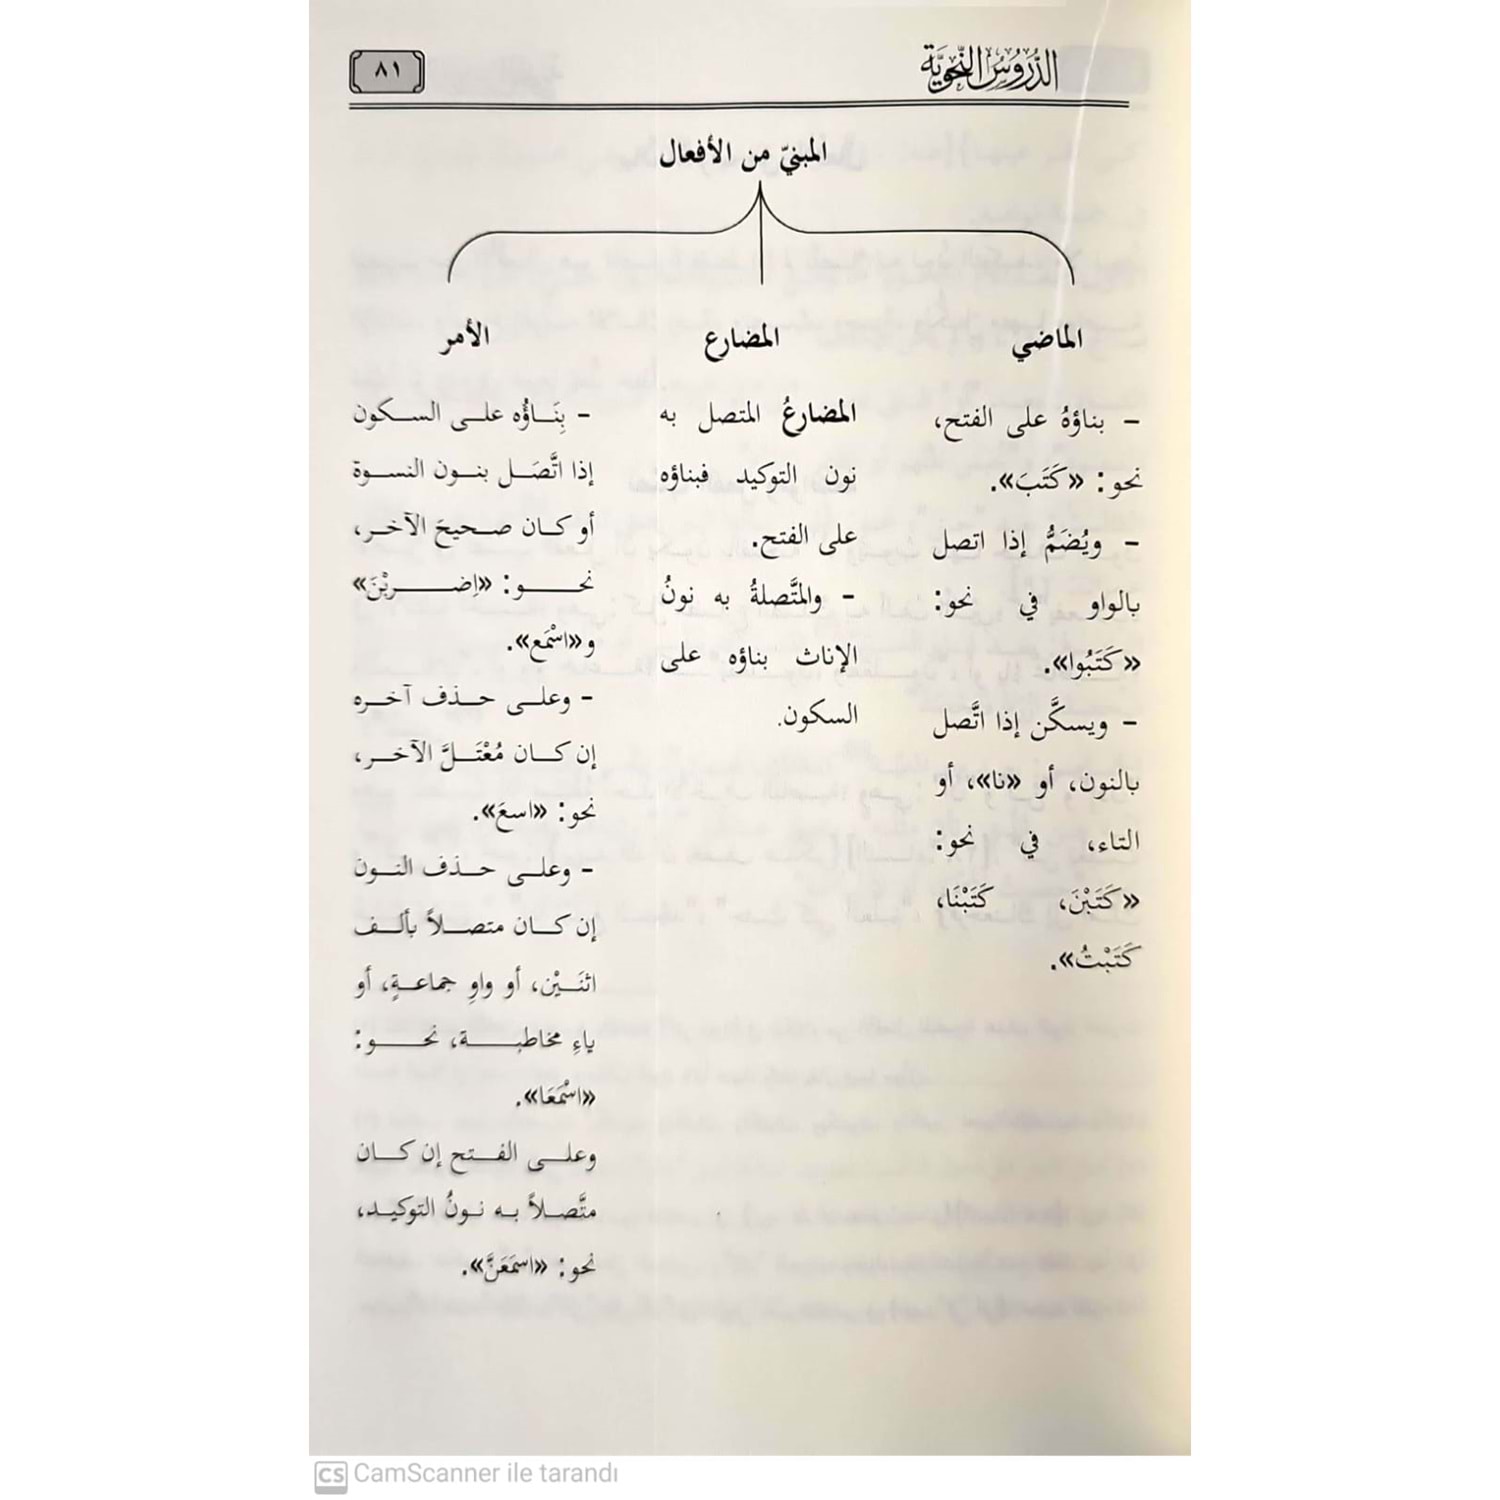 الدُّرُوسُ النَّحْوِيَّة
٨١
المبنيّ من الأفعال
الماضي
– بناؤهُ على الفتح،
نحو: «كَتَبَ».
– ويُضَمُّ إذا اتصل
بالواو في نحو:
«كَتَبُوا».
– ويسكَّن إذا اتَّصل
بالنون، أو «نا»، أو
التاء، في نحو:
«كَتَبْنَ، كَتَبْنَا،
كَتَبْتُ».
المضارع
المضارعُ المتصل به
نون التوكيد فبناؤه
على الفتح.
– والمتَّصلةُ به نونُ
الإناث بناؤه على
السكون.
الأمر
– بِنَاؤُه على السكون
إذا اتَّصَل بنون النسوة
أو كان صحيحَ الآخر،
نحو: «اِضربْنَ»
و«اسْمَع».
– وعلى حذف آخره
إن كان مُعْتَلَّ الآخر،
نحو: «اسعَ».
– وعلى حذف النون
إن كان متصلاً بألف
اثنَيْن، أو واوِ جماعةٍ، أو
ياءِ مخاطبة، نحو:
«اسْمَعَا».
وعلى الفتح إن كان
متَّصلاً به نونُ التوكيد،
نحو: «اسمَعَنَّ».
CS CamScanner ile tarandı